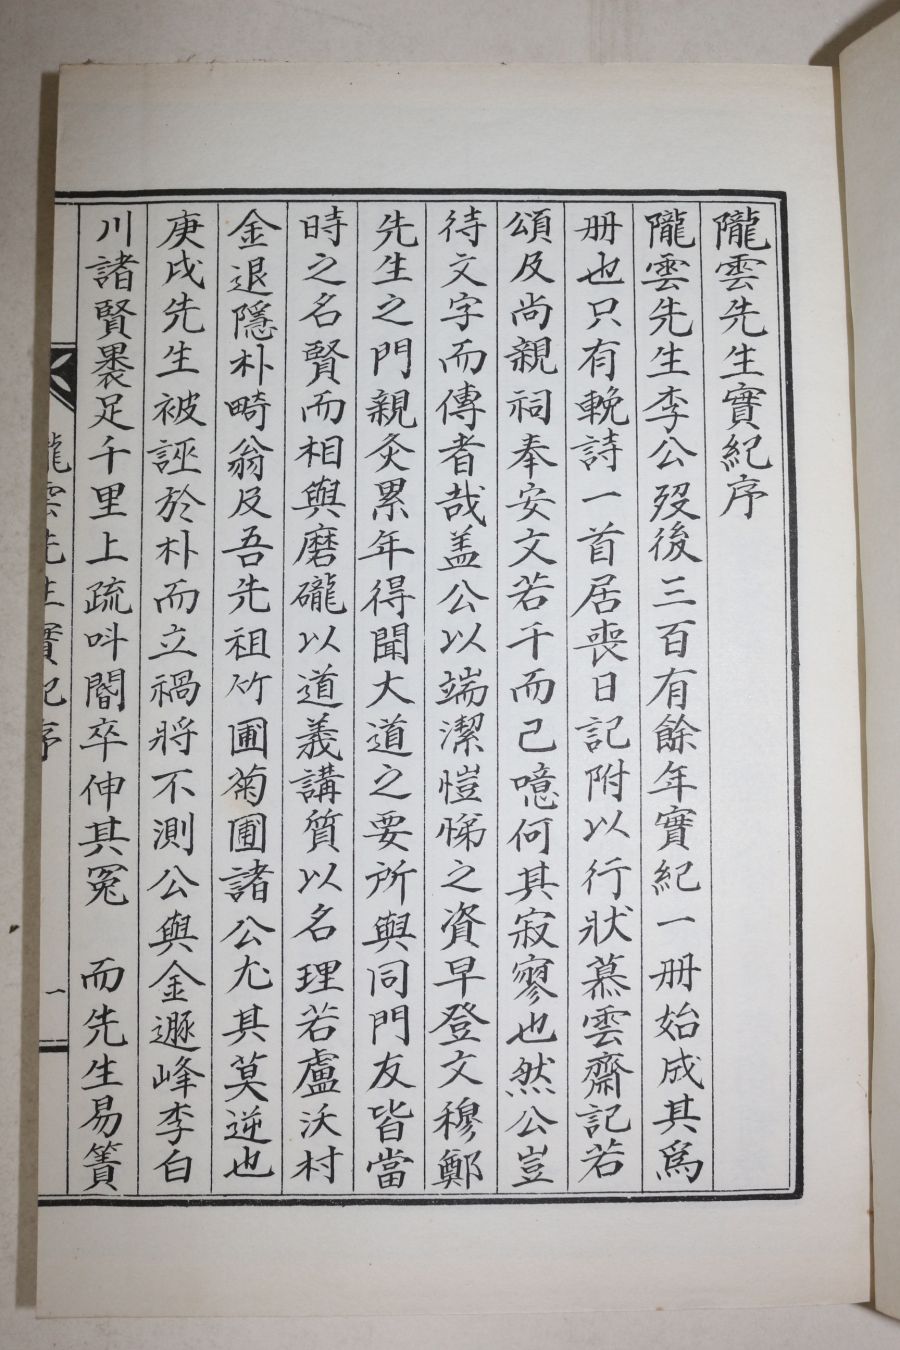 隴雲先生實紀序
隴雲先生李公歿後三百有餘年實紀一册始成其爲
册也只有輓詩一首居喪日記附以行狀慕雲齋記若
頌及尚親祠奉安文若干而己噫何其寂寥也然公豈
待文字而傳者哉盖公以端潔愷悌之資早登文穆鄭
先生之門親灸累年得聞大道之要所與同門友皆當
時之名賢而相與磨礲以道義講質以名理若盧沃村
金退隱朴畸翁及吾先祖竹圃菊圃諸公尤其莫逆也
庚戌先生被誣於朴而立禍將不測公與金遯峰李白
川諸賢褁足千里上疏呌閽卒伸其冤　而先生易簀
隴雲先生實紀序　一